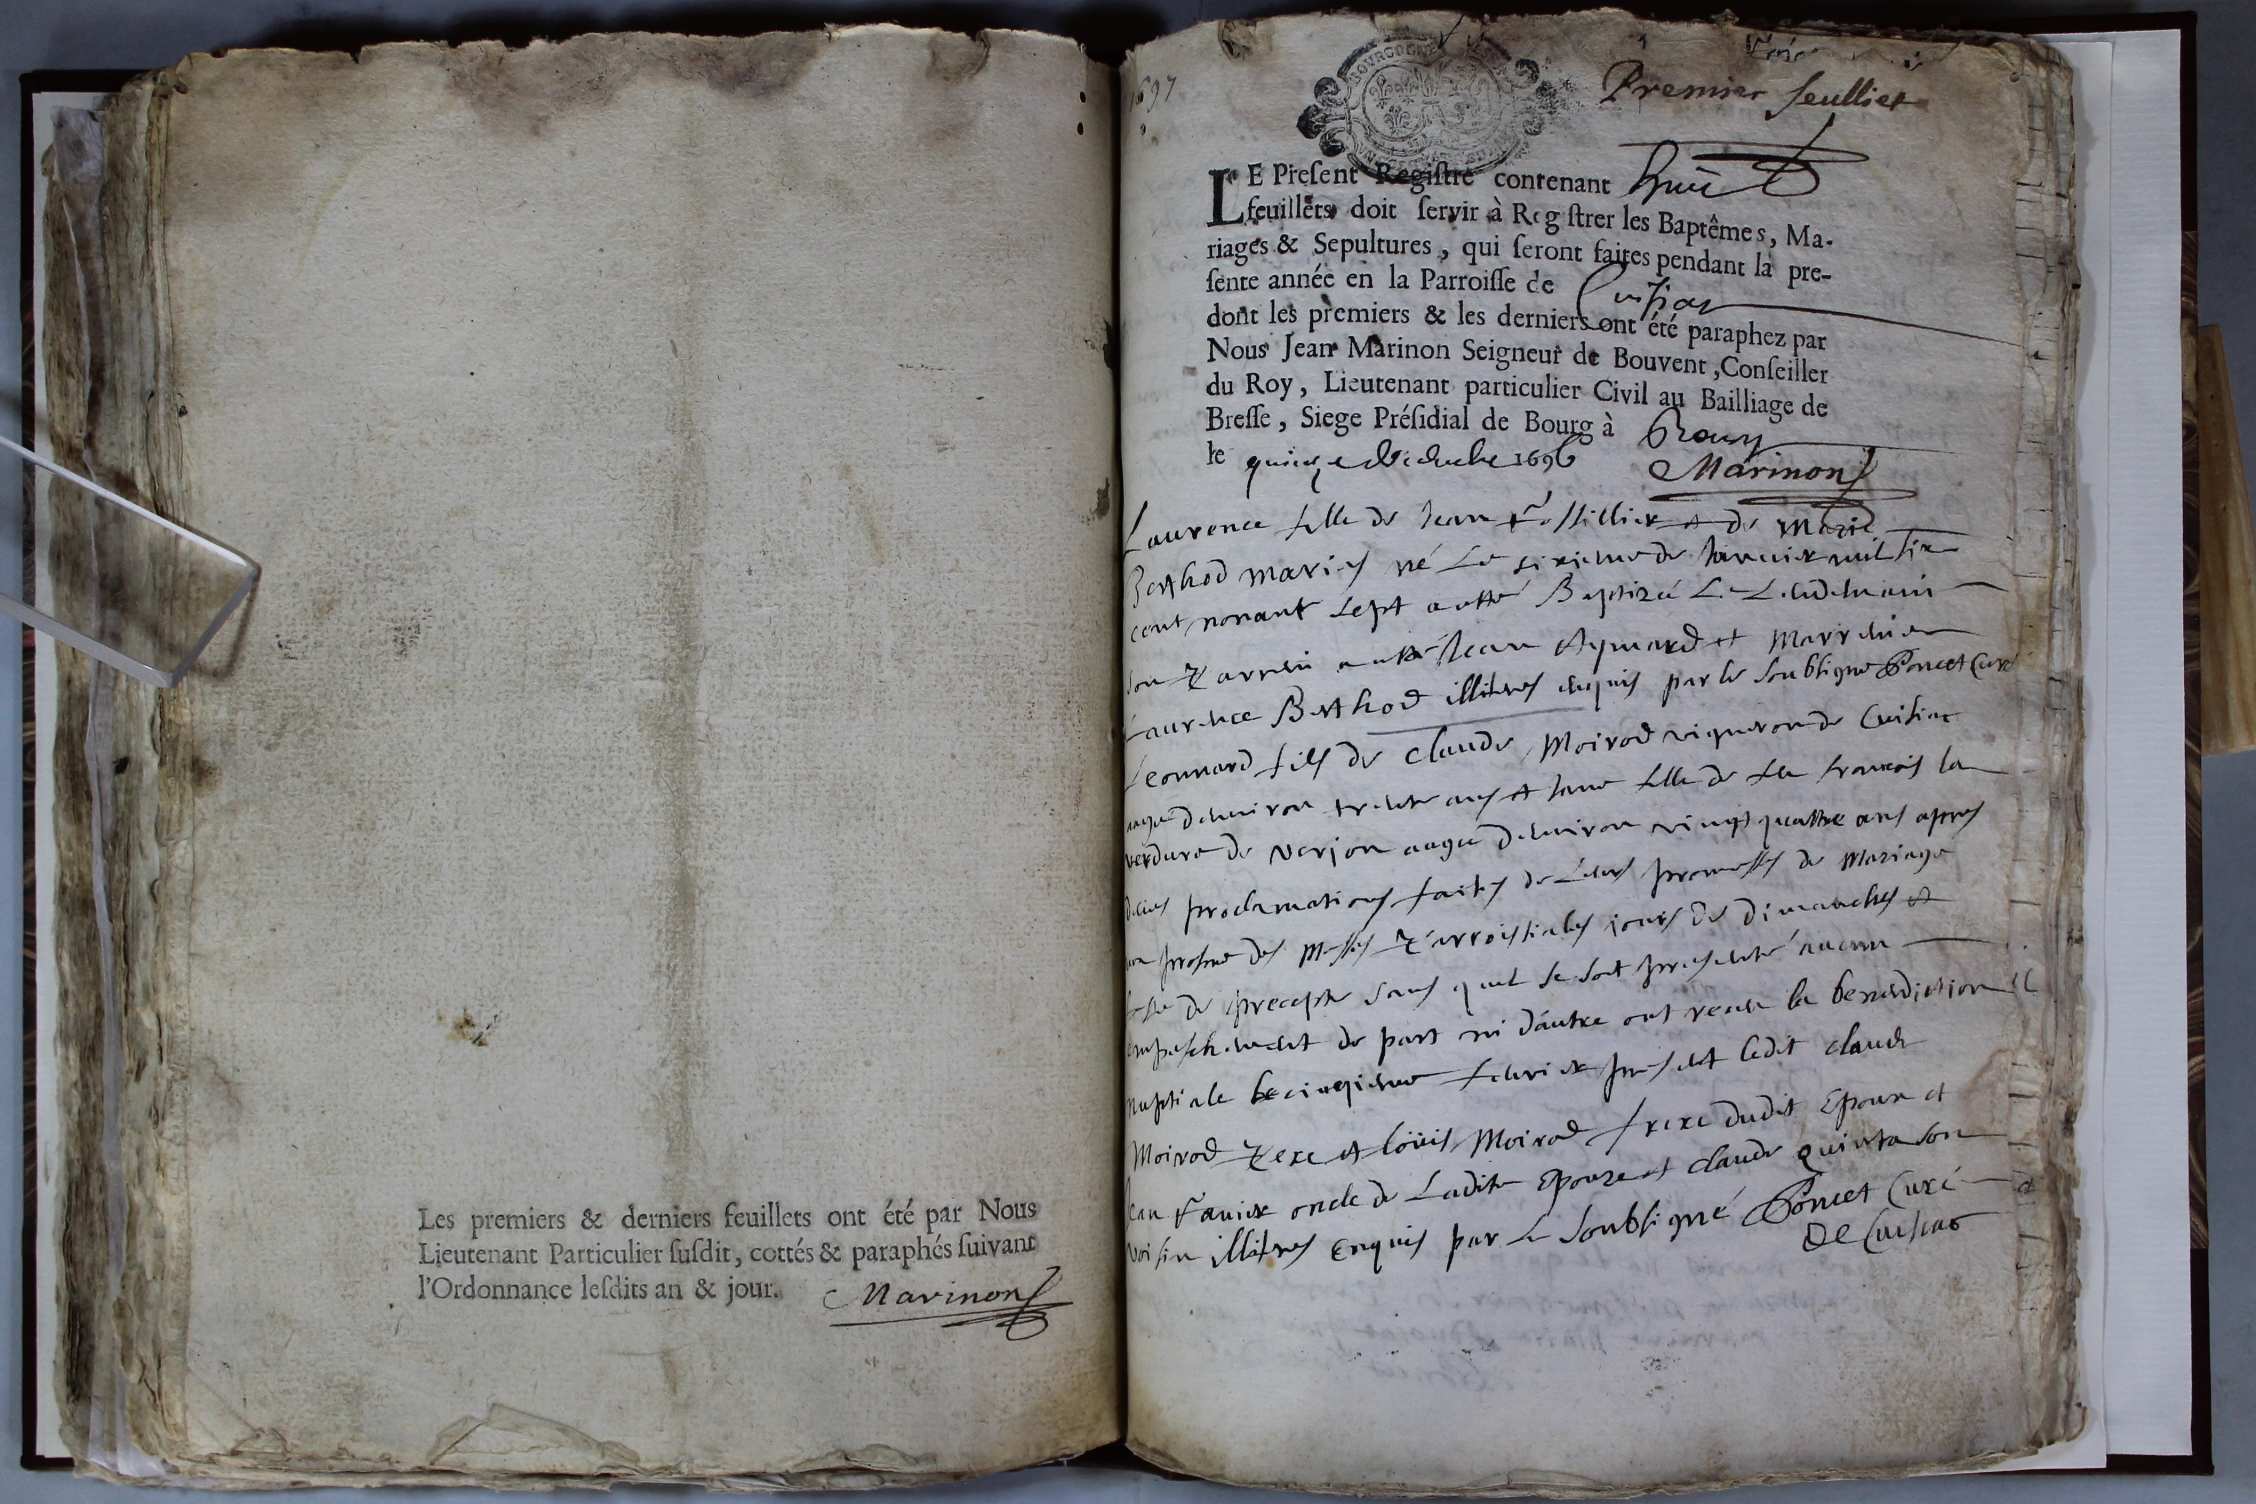 Les premiers & derniers feuillets ont été par Nous
Lieutenant Particulier ſuſdit, cottés & paraphés ſuivant
l'Ordonnance leſdits an & jour.
Marinon
1697
BOURGOGNE
Premier feulliet
LE Preſent Regiſtre contenant huit
feuillets doit ſervir à Reg ſtrer les Baptêmes, Ma-
riages & Sepultures, qui ſeront faites pendant la pre-
ſente année en la Parroiſſe de Cuisiat
dont les premiers & les derniers ont été paraphez par
Nous Jean Marinon Seigneur de Bouvent, Conſeiller
du Roy, Lieutenant particulier Civil au Bailliage de
Breſſe, Siege Préſidial de Bourg à Bourg
le quinze decembre 1696
Marinon
Laurence fille de Jean et de Marie
Berthod mariés né Le sixieme de Janvier mil six
cent nonant sept a etté Baptizé Le Lendemain
son Parrein a etté Jean Aymard et Marreine
Laurence Berthod illitres enquis par le soubsigné Poncet Curé
Leonnard fils de Claude Moirod vigneron de Cuisiat
aagé denviron trente ans et Jane fille de feu francois la
verdure de verjon aagé denviron vingt quattre ans apres
deues proclamations faites de Leurs promesses de Mariage
au prosne des Messes Parroissiales jours de dimanches et
feste de precepte sans quil se soit presenté aucun
empeschement de part ni dautre ont receu la benediction
nuptiale le cinqieme fevrier present ledit claude
Moirod Pere et loüis Moirod frere dudit Epoux et
Jean Favier oncle de Ladite Epouze et claude quinta son
voisin illitres enquis par Le soubsigné Poncet Curé
de Cuisiat